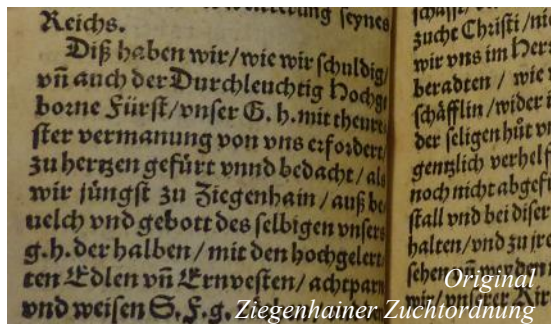 Reichs.
Diß haben wir/wie wir schuldig/
vñ auch der Durchleuchtig Hochge
borne Fürst/vnser G. h. mit theure
ster vermanung von vns erfordert/
zu hertzen gefürt vnnd bedacht/als
wir jüngst zu Ziegenhain/auß be
uelch vnd gebott des selbigen vnsers
g.h. der halben/mit den hochgeler
ten Edlen vñ Ernuesten/achtparn
vnd weisen S.F.g.
zucht Christi/
wir vns im
beradten/wie
schäfflin/wider
der seligen hůt
gentzlich verhelf
noch nicht abgef
stall vnd bei diser
halten/vnd zu
Original
Ziegenhainer Zuchtordnung